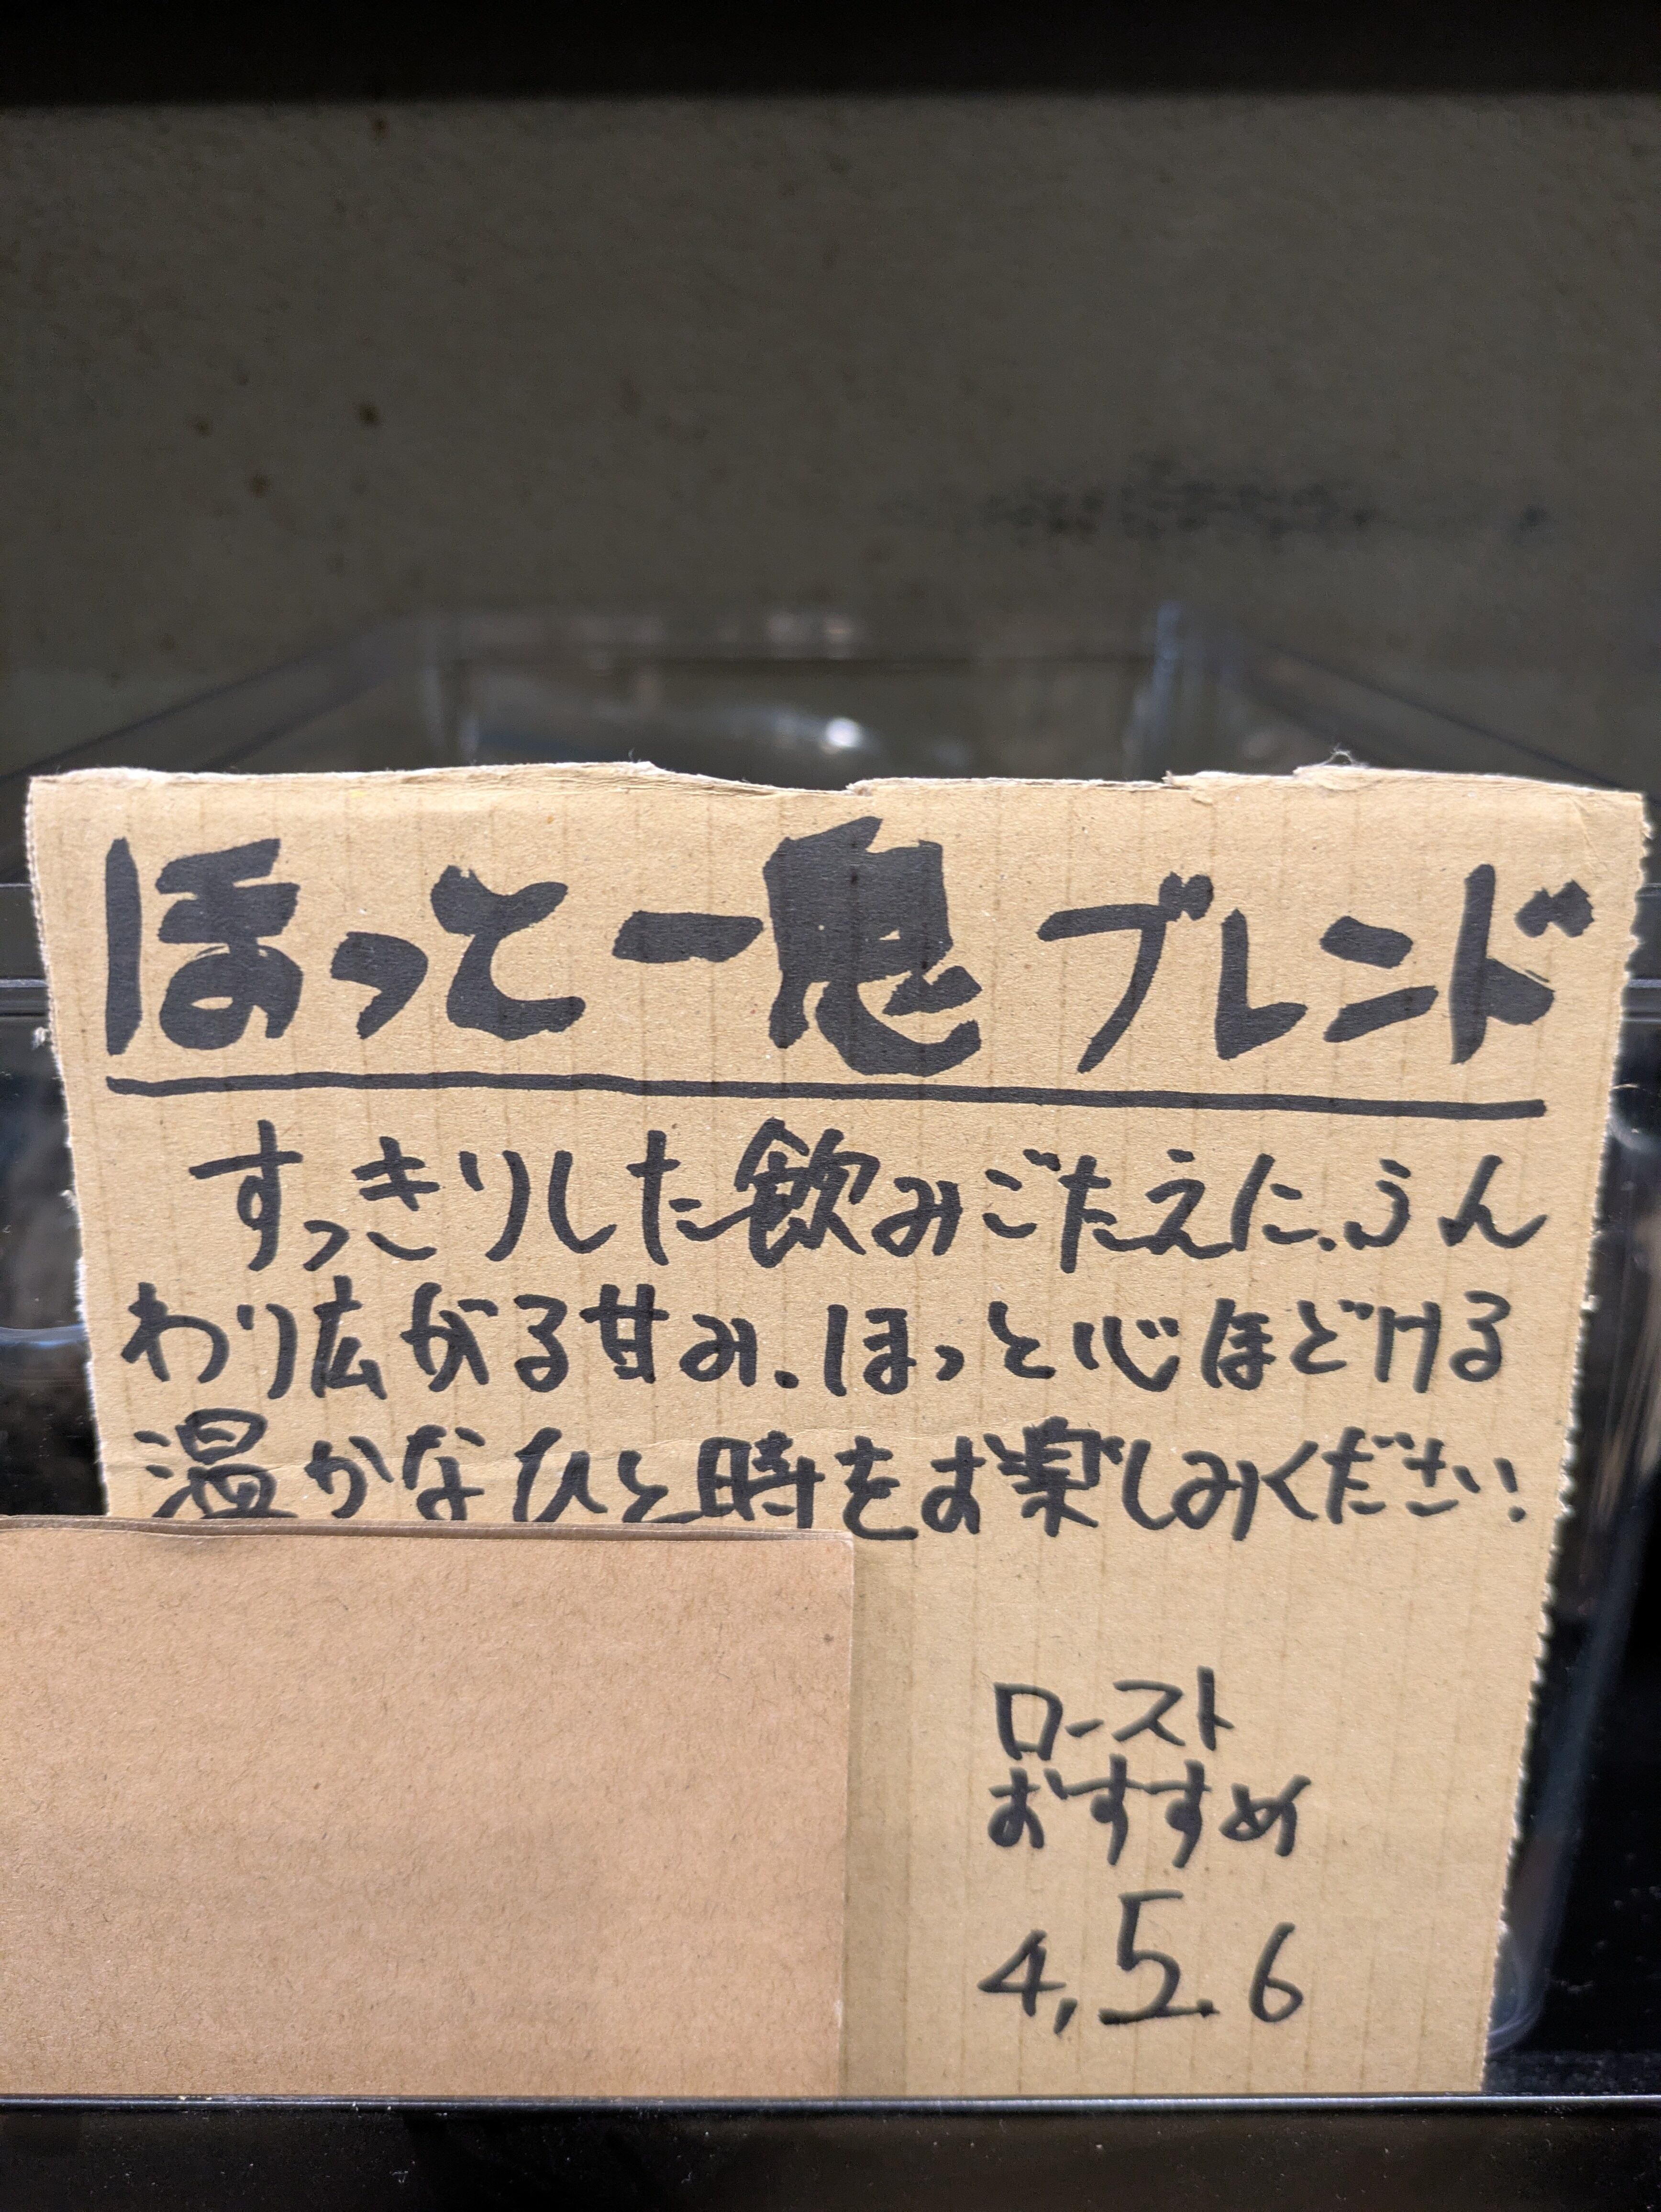 ほっと一鬼ブレンド
すっきりした飲みごたえに、ふん
わり広がる甘み、ほっと心ほどける
温かなひと時をお楽しみください!
ロースト
おすすめ
4,5.6